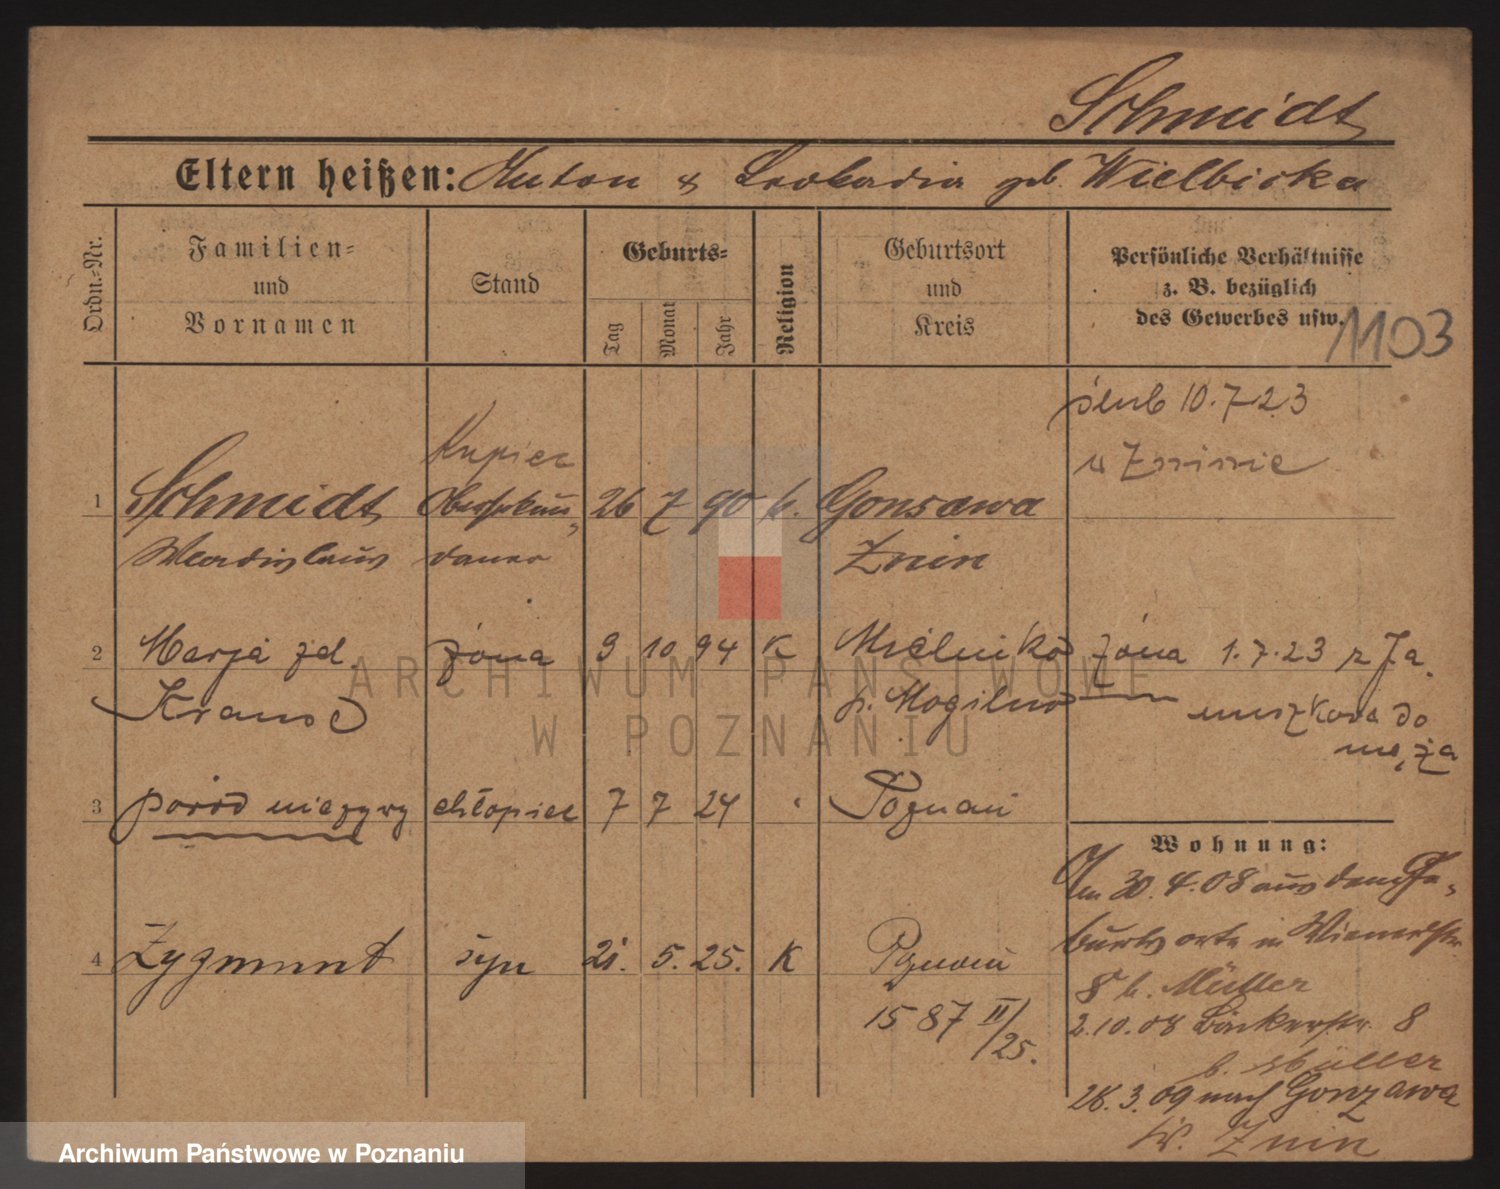 Schmidt
Eltern heißen: Anton & Leokadia geb. Wielbicka
Ordn.-Nr.
Familien-
und
Vornamen
Stand
Geburts-
Tag
Monat
Jahr
Religion
Geburtsort
und
Kreis
Persönliche Verhältnisse
z. B. bezüglich
des Gewerbes usw.
1103
ślub 10.7.23
w Żninie
Kupiec
1 Schmidt 26 7 90 k. Gonsawa
Wladislaus Znin
2 Marja zd. żona 9 10 94 K Mielniko żona 1.7.23 z Ja.
Kranc p. Mogilno mieszkova do
męża
3 poród nieżywy chłopiec 7 7 24 Poznań
Wohnung:
Am 30.4.08 aus dem Ge-
burtsorte in Wienerstr.
8 b. Müller
4 Zygmunt syn 21. 5. 25. K Poznań
1587 II/25.
2.10.08 Bäckerstr. 8
b. Müller
28.3.09 nach Gonzawa
Kr. Znin
ARCHIWUM PAŃSTWOWE
W POZNANIU
Archiwum Państwowe w Poznaniu